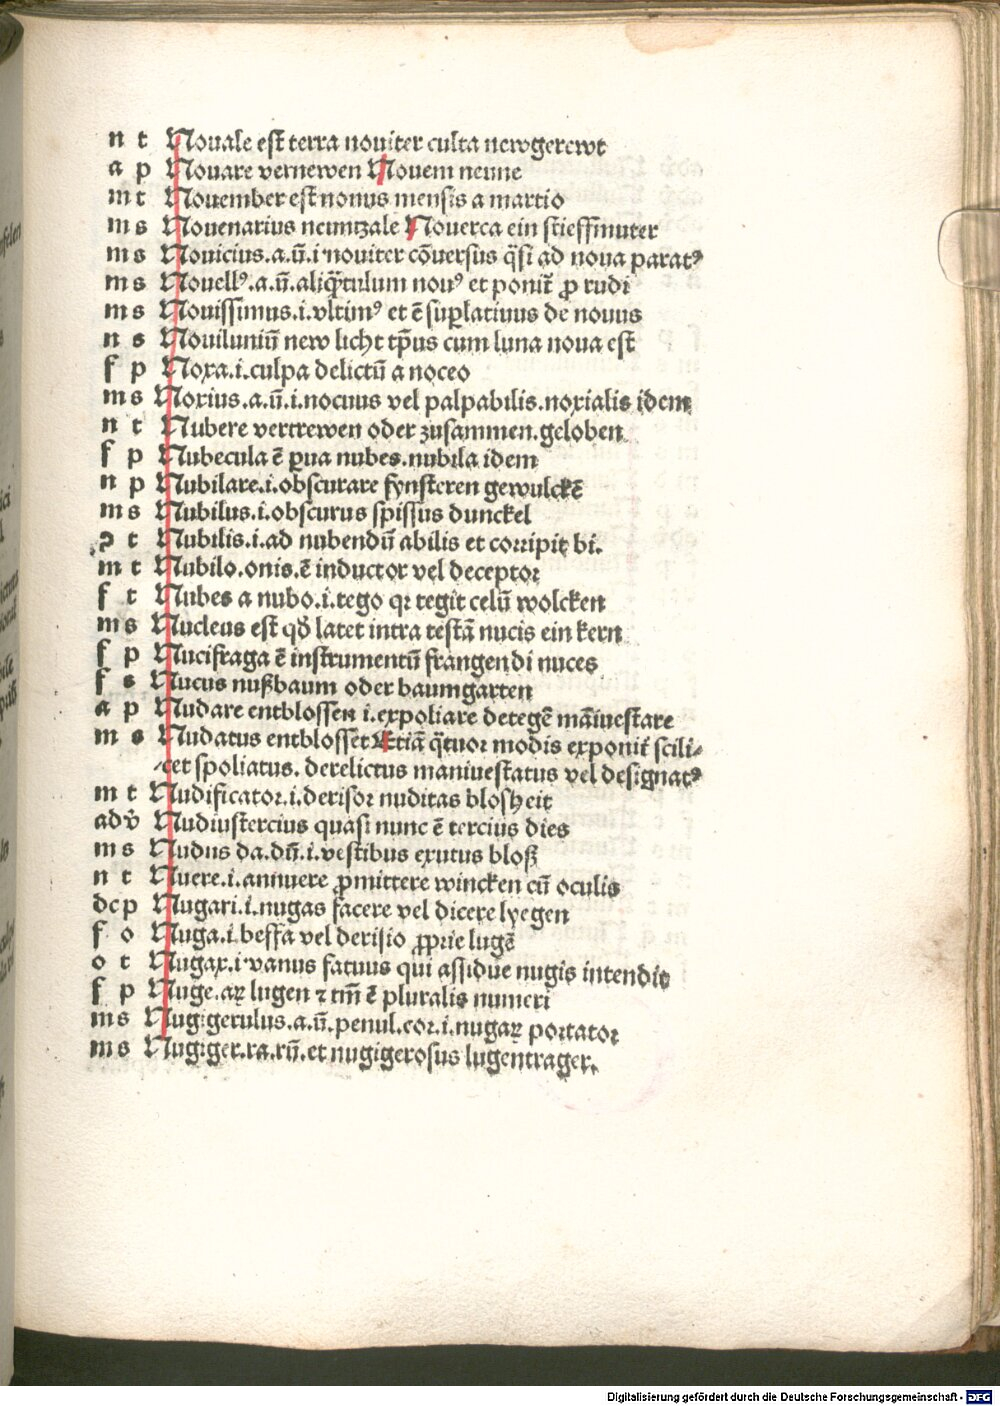 n t Nouale est terra nouiter culta newgerewt
a p Nouare vernewen Nouem neune
m t Nouember est nonus mensis a martio
m s Nouenarius neuntzale Nouerca ein stieffmuter
m s Nouicius.a.ū.i nouiter cōuersus q̄si ad noua paratꝰ
m s Nouellꝰ.a.ū.aliq̄tulum nouꝰ et ponit̄ ꝓ rudi
m s Nouissimus.i.vltimꝰ et ē suꝑlatiuus de nouus
n s Nouiluniū new licht tp̄us cum luna noua est
f p Noxa.i.culpa delictū a noceo
m s Noxius.a.ū.i.nocuus vel palpabilis.noxialis idem
n t Nubere vertrewen oder zusammen.geloben
f p Nubecula ē ꝑua nubes.nubila idem
n p Nubilare.i.obscurare fynsteren gewulckē
m s Nubilus.i.obscurus spissus dunckel
ꝯ t Nubilis.i.ad nubendū abilis et corripit bi.
m t Nubilo.onis.ē inductor vel deceptor
f t Nubes a nubo.i.tego qꝛ tegit celū wolcken
m s Nucleus est qd̄ latet intra testā nucis ein kern
f p Nucifraga ē instrumentū frangendi nuces
f s Nucus nußbaum oder baumgarten
a p Nudare entblossen i.expoliare detegē māiuestare
m s Nudatus entblosset Etiā q̄tuor modis exponit̄ scili⸗
cet spoliatus. derelictus maniuestatus vel designatꝰ
m t Nudificator.i.derisor nuditas blosheit
adv̄ Nudiustercius quasi nunc ē tercius dies
m s Nudus da.dū.i.vestibus exutus bloß
n t Nuere.i.annuere ꝓmittere wincken cū oculis
dep Nugari.i.nugas facere vel dicere lyegen
f o Nuga.i.beffa vel derisio ꝓprie lugē
o t Nugax.i vanus fatuus qui assidue nugis intendit
f p Nuge.aꝝ lugen ⁊ tm̄ ē pluralis numeri
m s Nugigerulus.a.ū.penul.cor.i.nugaꝝ portator
m s Nugiger.ra.rū.et nugigerosus lugentrager.
Digitalisierung gefördert durch die Deutsche Forschungsgemeinschaft - DFG